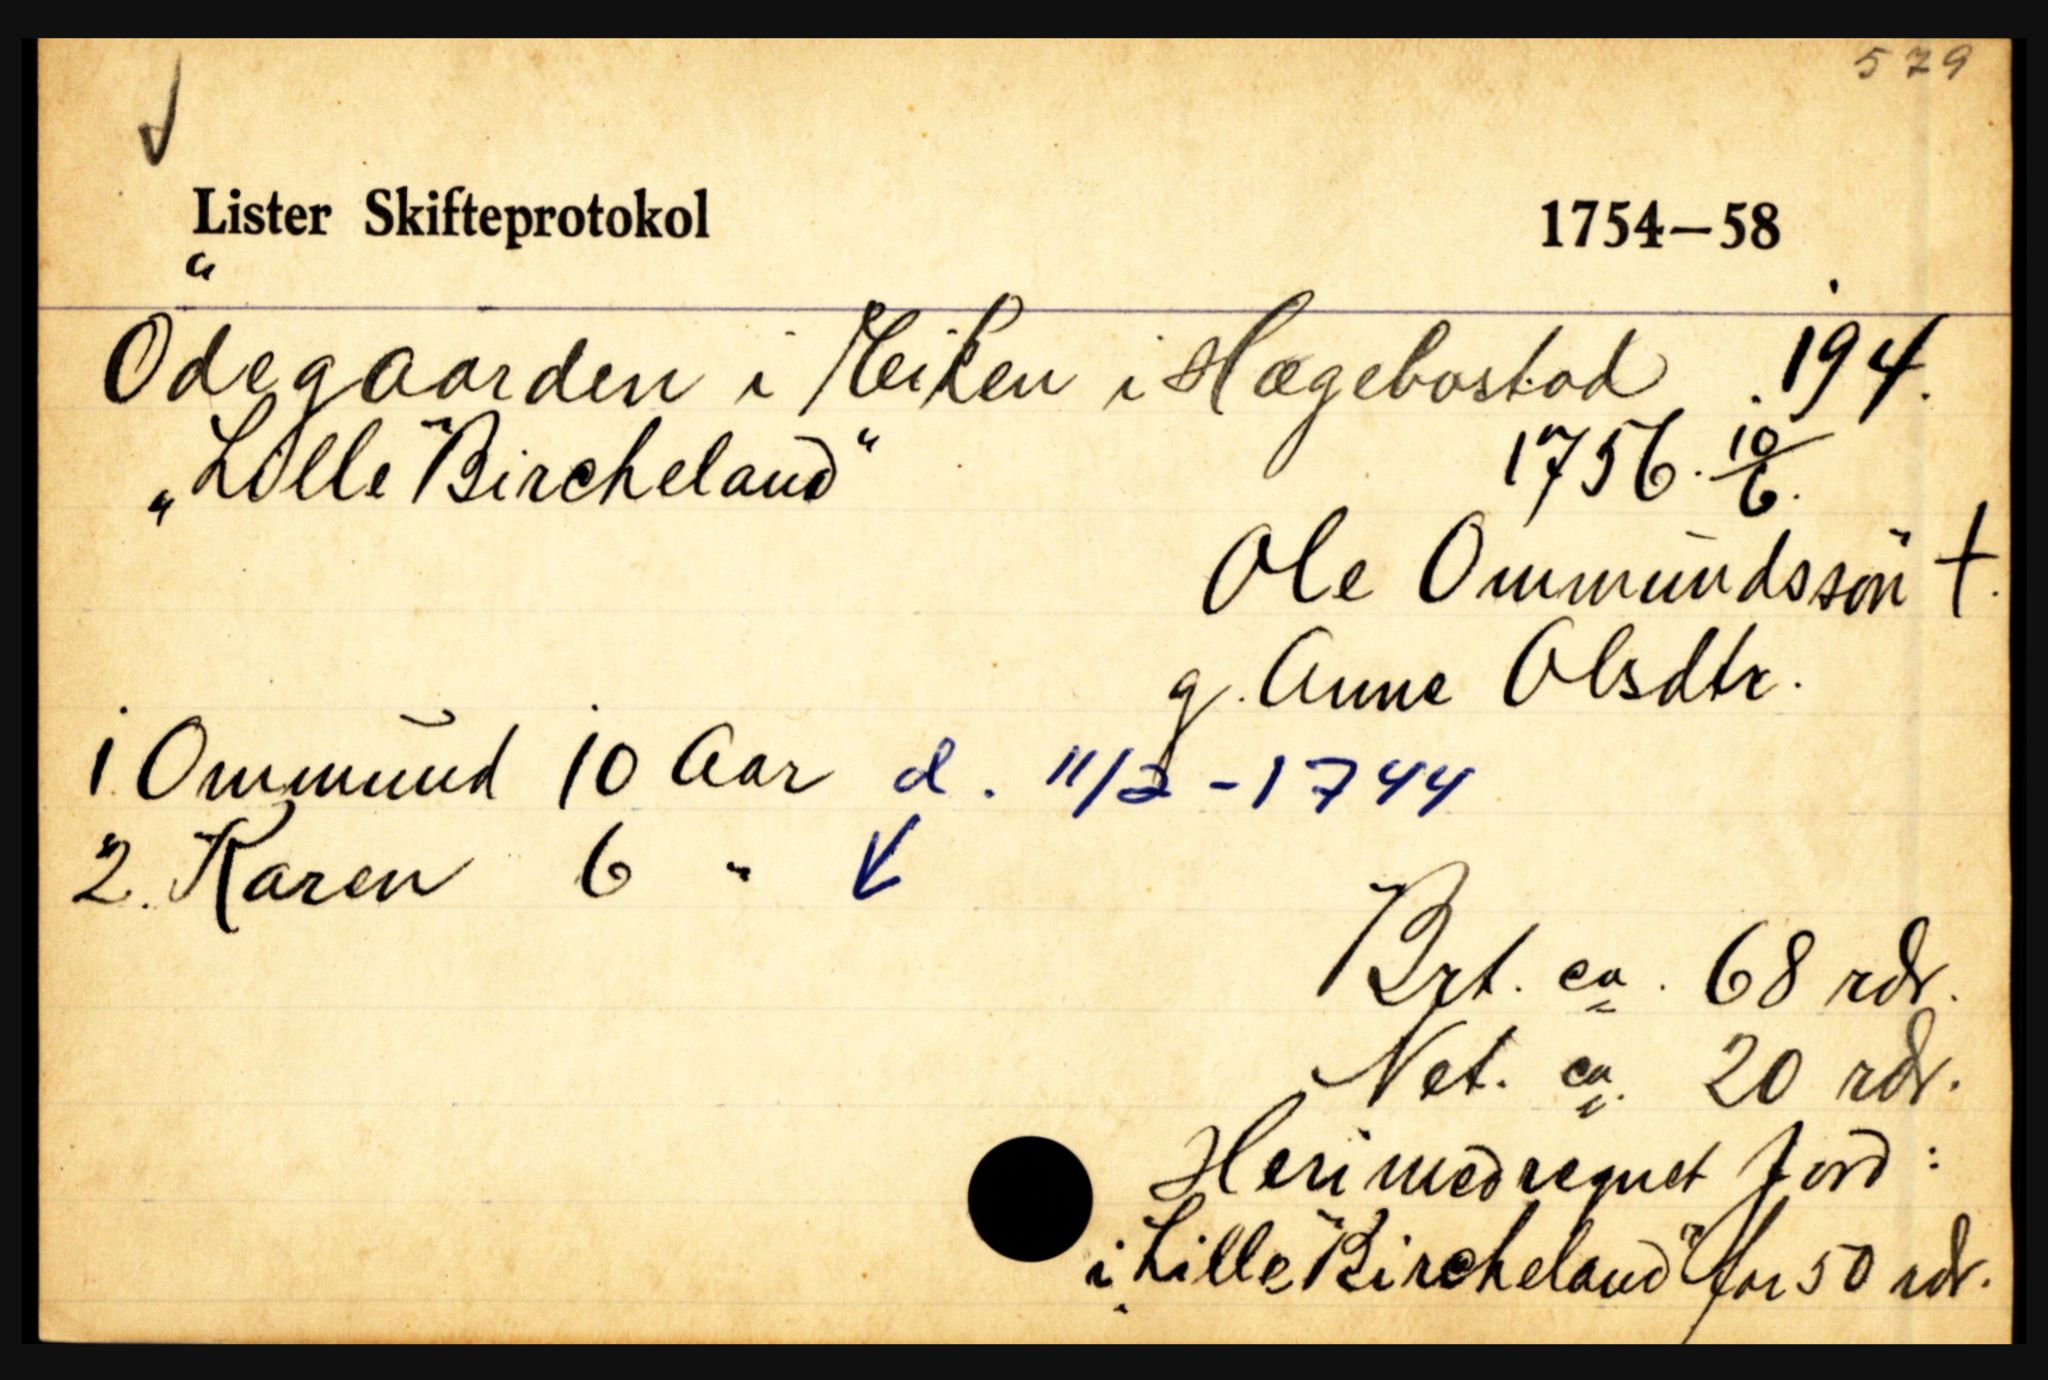 579
Lister Skifteprotokol 1754—58
"
Odegaarden i Heiken i Hægebostad 194.
„Lille Bircheland" 1756. 10/6.
Ole Ommundssön †.
g. Anne Olsdtr.
1 Ommund 10 Aar d. 11/2 - 1744
2. Karen 6 "
Brt. ca. 68 rdr.
Net. ca. 20 rdr.
Heri medregnet Jord:
i „Lille Bircheland" for 50 rdr.